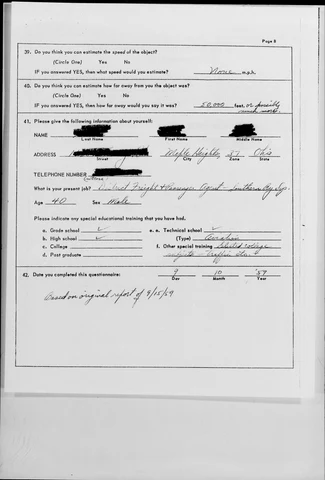 Page 8
39. Do you think you can estimate the speed of the object?
(Circle One) Yes No
IF you answered YES, then what speed would you estimate? None mph
40. Do you think you can estimate how far away from you the object was?
(Circle One) Yes No
IF you answered YES, then how far away would you say it was? 50,000 feet, or possibly much more.
41. Please give the following information about yourself:
NAME
Last Name First Name Middle Name
ADDRESS Maple Heights 37 Ohio
Street City Zone State
TELEPHONE NUMBER
What is your present job? District Freight & Passenger Agent - Southern Ry Sys.
Age 40 Sex Male
Please indicate any special educational training that you have had.
a. Grade school ✓ e. Technical school ✓
b. High school ✓ (Type) Aviation
c. College f. Other special training college
d. Post graduate subjects - Traffic
42. Date you completed this questionnaire: 9 10 '59
Day Month Year
Based on original report of 9/15/59